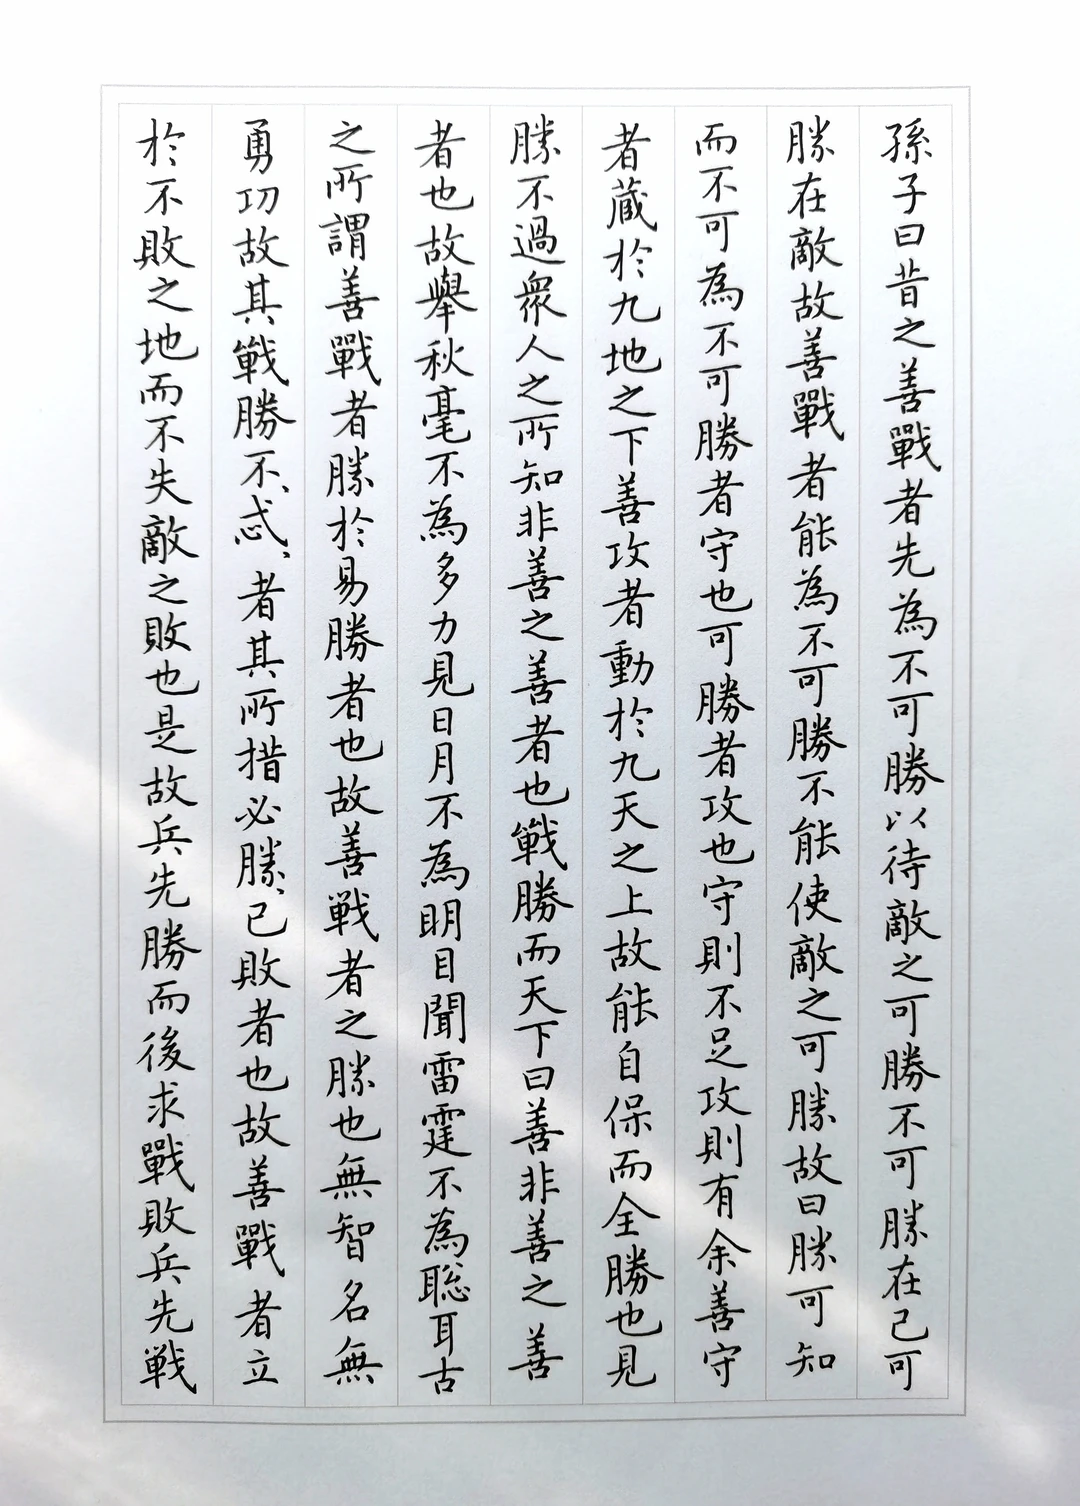 孫子曰昔之善戰者先為不可勝以待敵之可勝不可勝在己可
勝在敵故善戰者能為不可勝不能使敵之可勝故曰勝可知
而不可為不可勝者守也可勝者攻也守則不足攻則有余善守
者蔵於九地之下善攻者動於九天之上故能自保而全勝也見
勝不過衆人之所知非善之善者也戦勝而天下曰善非善之善
者也故舉秋毫不為多力見日月不為明目聞雷霆不為聡耳古
之所謂善戰者勝於易勝者也故善戦者之勝也無智名無
勇功故其戦勝不忒、者其所措必勝、已敗者也故善戰者立
於不敗之地而不失敵之敗也是故兵先勝而後求戰敗兵先戦